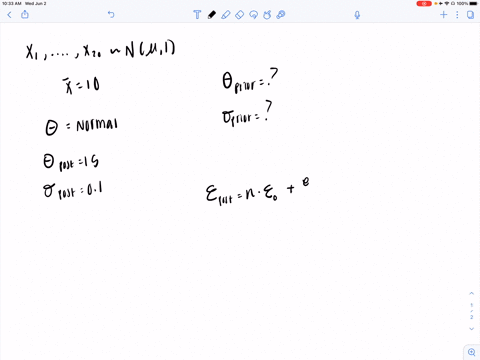 10:33 AM Wed Jun 2
100%
X₁, ...., X₂₀ ~ N(μ,1)
x̄ = 10
θprior = ?
σprior = ?
Θ = Normal
θpost = 15
σpost = 0.1
εpost = n · ε₀ +
1
2